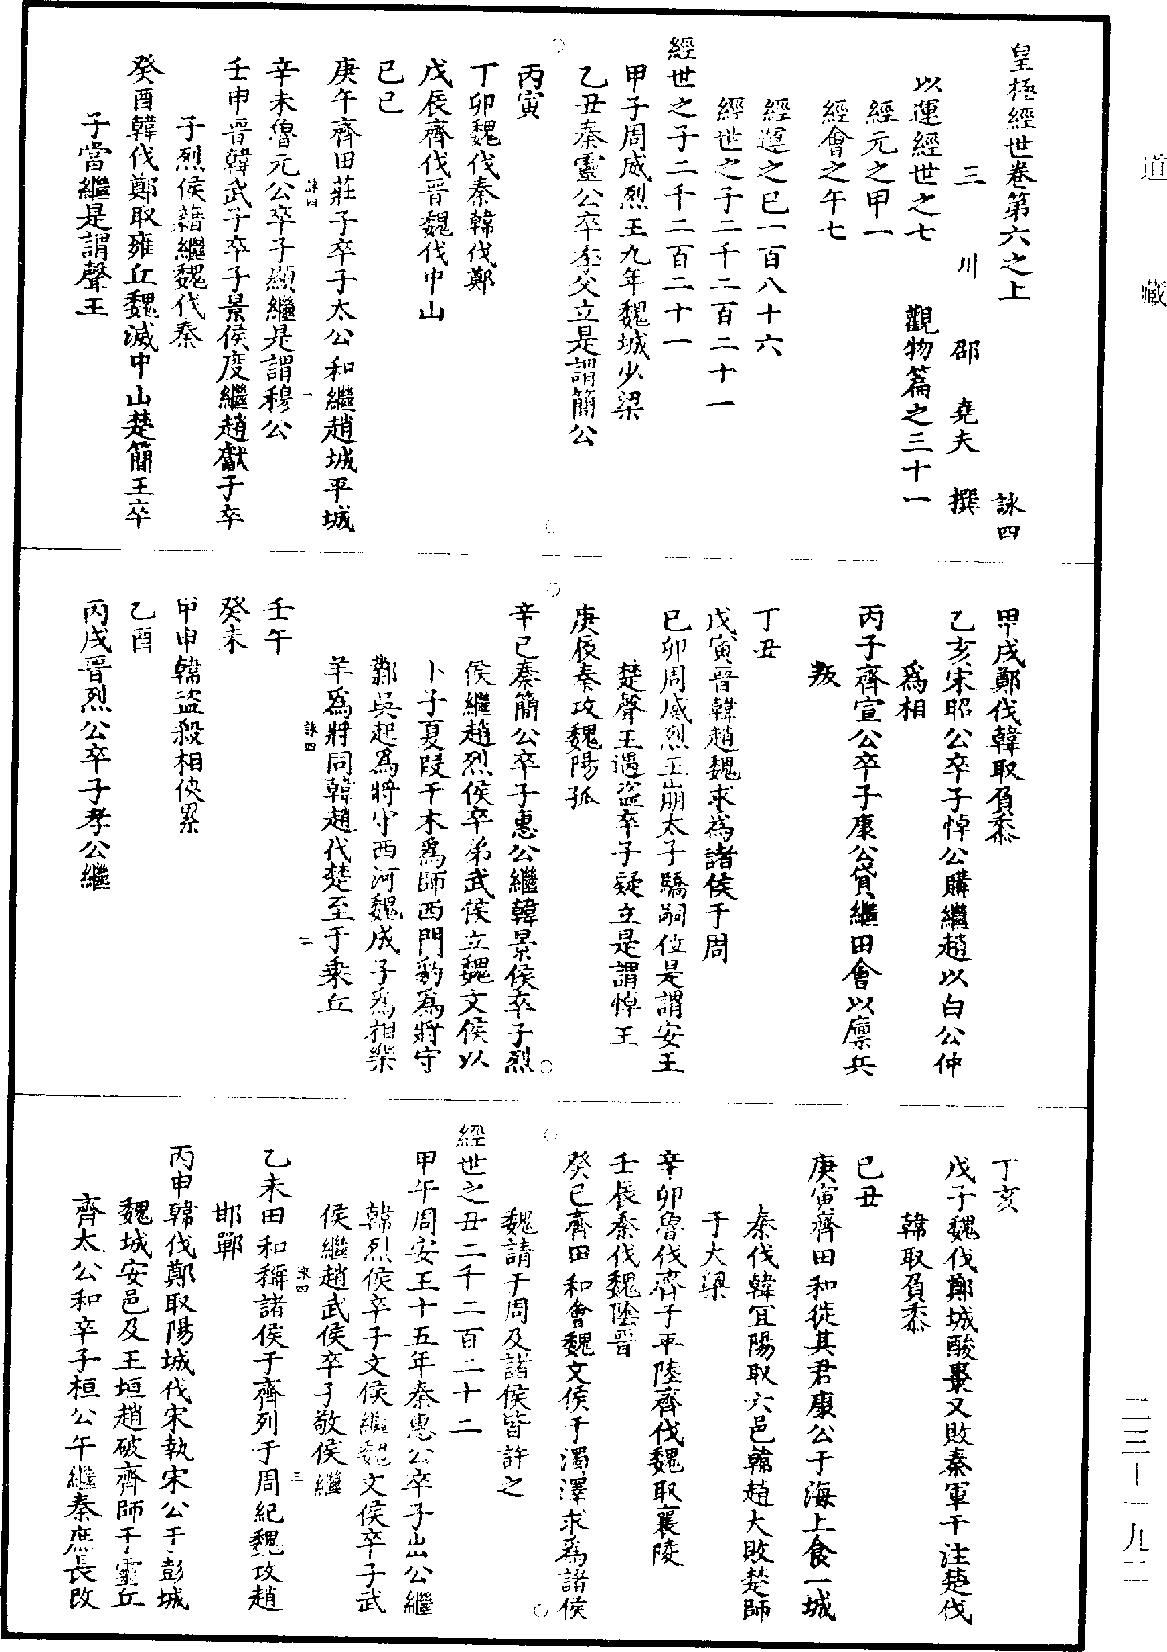 道藏
皇極經世卷第六之上
詠四
三川邵堯夫撰
以運經世之七　觀物篇之三十一
經元之甲一
經會之午七
經運之巳一百八十六
經世之子二千二百二十一
經世之子二千二百二十一
甲子周威烈王九年魏城少梁
乙丑秦靈公卒季父立是謂簡公
丙寅
丁卯魏伐秦韓伐鄭
戊辰齊伐晉魏伐中山
己巳
庚午齊田莊子卒子太公和繼趙城平城
詠四　一
辛未魯元公卒子顯繼是謂穆公
壬申晉韓武子卒子景侯虔繼趙獻子卒
子烈侯藉繼魏伐秦
癸酉韓伐鄭取雍丘魏滅中山楚簡王卒
子當繼是謂聲王
甲戌鄭伐韓取負黍
乙亥宋昭公卒子悼公購繼趙以白公仲
為相
丙子齊宣公卒子康公貸繼田會以廩兵
叛
丁丑
戊寅晉韓趙魏求為諸侯于周
己卯周威烈王崩太子驕嗣位是謂安王
楚聲王遇盜卒子疑立是謂悼王
庚辰秦攻魏陽孤
辛巳秦簡公卒子惠公繼韓景侯卒子烈
侯繼趙烈侯卒弟武侯立魏文侯以
卜子夏段干木爲師西門豹爲將守
鄴吳起爲將守西河魏成子爲相樂
羊爲將同韓趙伐楚至于乘丘
詠四　二
壬午
癸未
甲申韓盜殺相俠累
乙酉
丙戌晉烈公卒子孝公繼
丁亥
戊子魏伐鄭城酸棗又敗秦軍于注楚伐
韓取負黍
己丑
庚寅齊田和徙其君康公于海上食一城
秦伐韓宜陽取六邑韓趙大敗楚師
于大梁
辛卯魯伐齊于平陸齊伐魏取襄陵
壬辰秦伐魏陰晉
癸巳齊田和會魏文侯于濁澤求爲諸侯
魏請于周及諸侯皆許之
經世之丑二千二百二十二
甲午周安王十五年秦惠公卒子出公繼
韓烈侯卒子文侯繼魏文侯卒子武
侯繼趙武侯卒子敬侯繼
詠四　三
乙未田和稱諸侯于齊列于周紀魏攻趙
邯鄲
丙申韓伐鄭取陽城伐宋執宋公于彭城
魏城安邑及王垣趙破齊師于靈丘
齊太公和卒子桓公午繼秦庶長改
二三—一九二